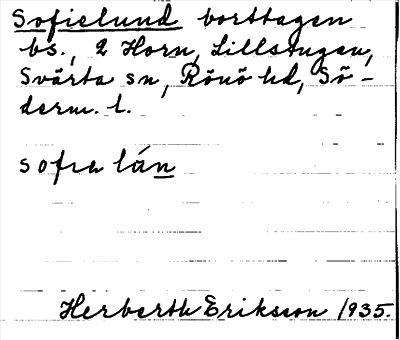 Sofielund borttagen
bs., 2 Horn, Lillstugan,
Svärta sn, Rönö hd, Sö-
derm. l.
sofia lún
Herbarth Eriksson 1935.